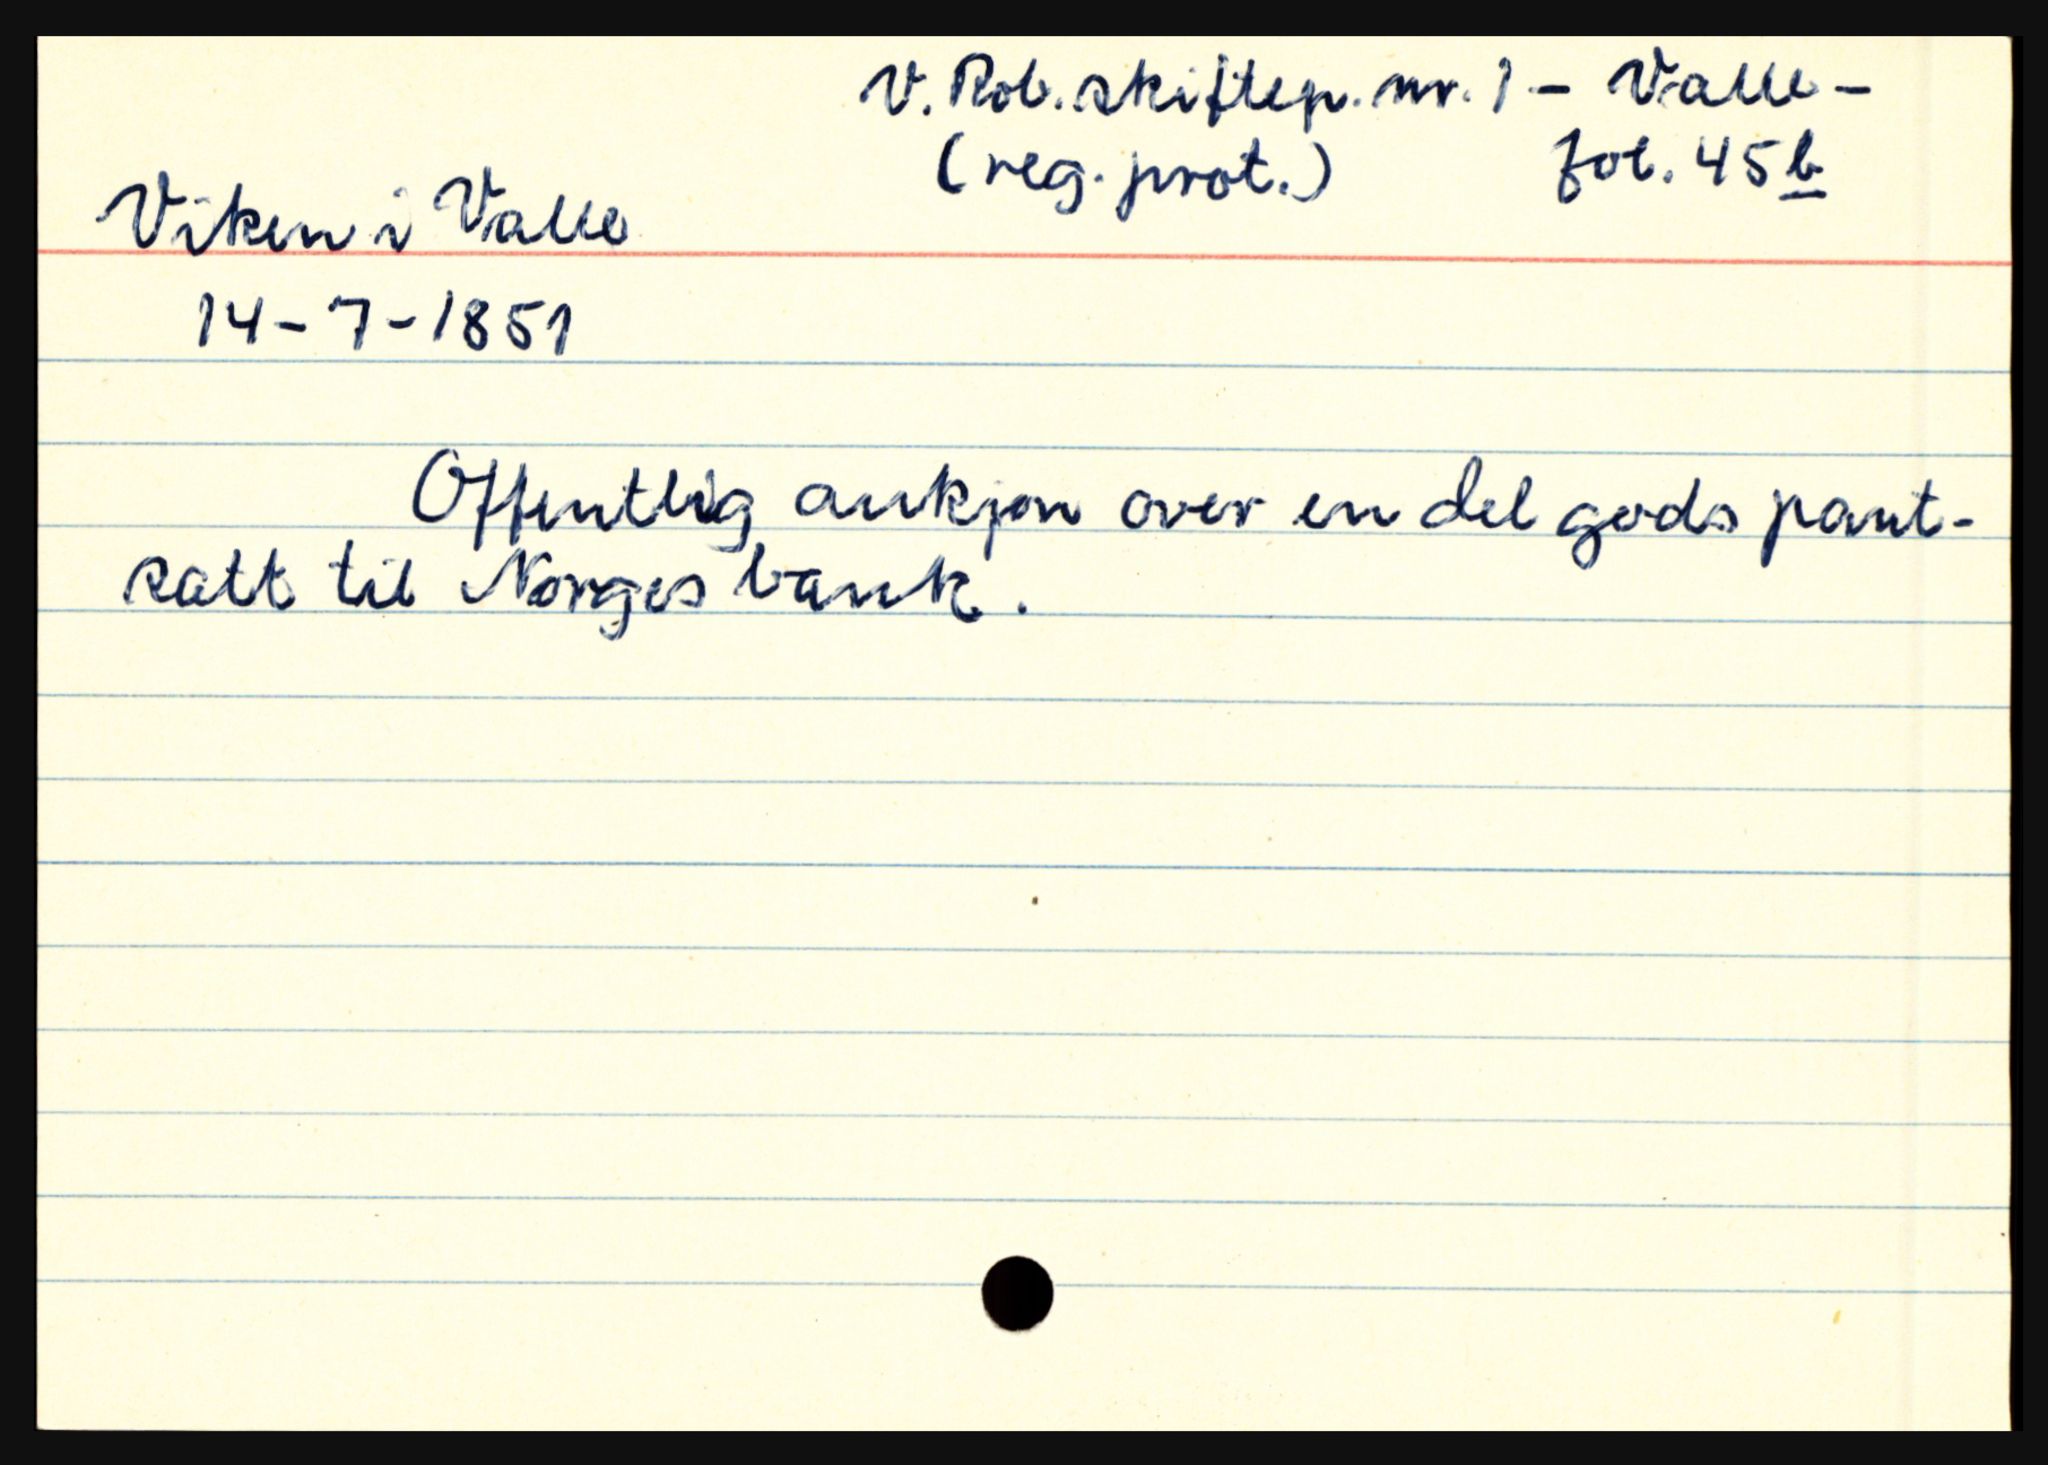 V. Rob. skiftep. nr. 1 - Valle -
(reg. prot.) fol. 45b
Viken i Valle
14-7-1851
Offentlig aukjon over en del gods pant-
satt til Norges bank.